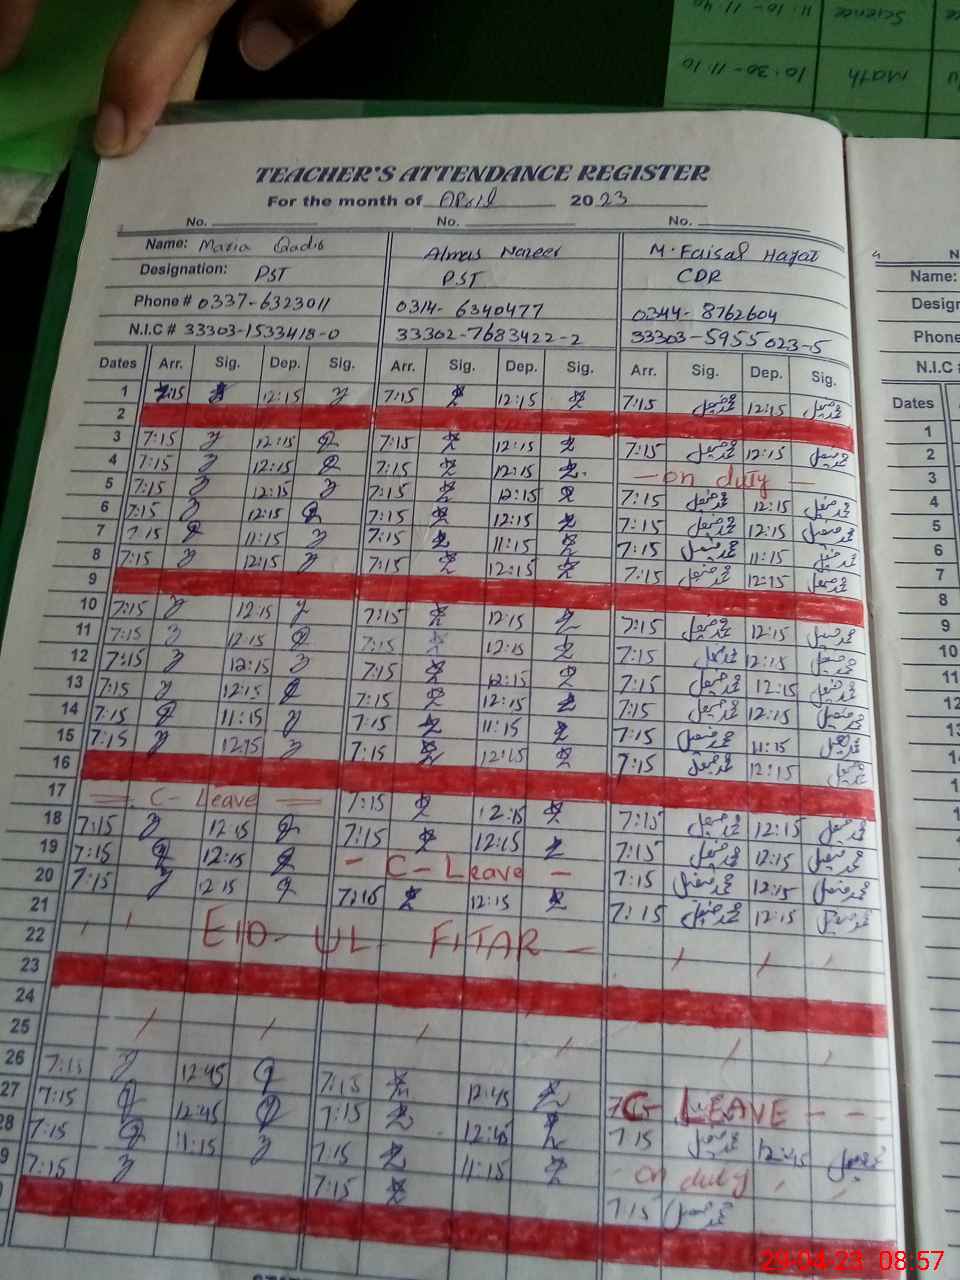 11:10-11:40 Science
10:30-11:10 Math
TEACHER'S ATTENDANCE REGISTER
For the month of April 2023
No. No. No.
Name: Maria Qadis Almas Nazeer M. Faisal Hayat
Designation: PST PST CDR
Phone # 0337-6323011 0314-6340477 0344-8762604
N.I.C # 33303-1533418-0 33302-7683422-2 33303-5955023-5
Dates Arr. Sig. Dep. Sig. Arr. Sig. Dep. Sig. Arr. Sig. Dep. Sig.
1 7:15 12:15 7:15 12:15 7:15 12:15
2
3 7:15 12:15 7:15 12:15 7:15 12:15
4 7:15 12:15 7:15 12:15 - on duty -
5 7:15 12:15 7:15 12:15 7:15 12:15
6 7:15 12:15 7:15 12:15 7:15 12:15
7 7:15 11:15 7:15 11:15 7:15 11:15
8 7:15 12:15 7:15 12:15 7:15 12:15
9
10 7:15 12:15 7:15 12:15 7:15 12:15
11 7:15 12:15 7:15 12:15 7:15 12:15
12 7:15 12:15 7:15 12:15 7:15 12:15
13 7:15 12:15 7:15 12:15 7:15 12:15
14 7:15 11:15 7:15 11:15 7:15 11:15
15 7:15 12:15 7:15 12:15 7:15 12:15
16
17 C-Leave 7:15 12:15 7:15 12:15
18 7:15 12:15 7:15 12:15 7:15 12:15
19 7:15 12:15 - C-Leave - 7:15 12:15
20 7:15 12:15 7:15 12:15 7:15 12:15
21 EID-UL FITAR -
22
23
24
25
26 7:15 12:45 7:15 12:45 C-LEAVE - - -
27 7:15 12:45 7:15 12:45 7:15 12:45
28 7:15 11:15 7:15 11:15 on duty
9 7:15 7:15 7:15
Name:
Design
Phone
N.I.C
Dates
1
2
3
4
5
6
7
8
9
10
11
12
13
29-04-23 08:57